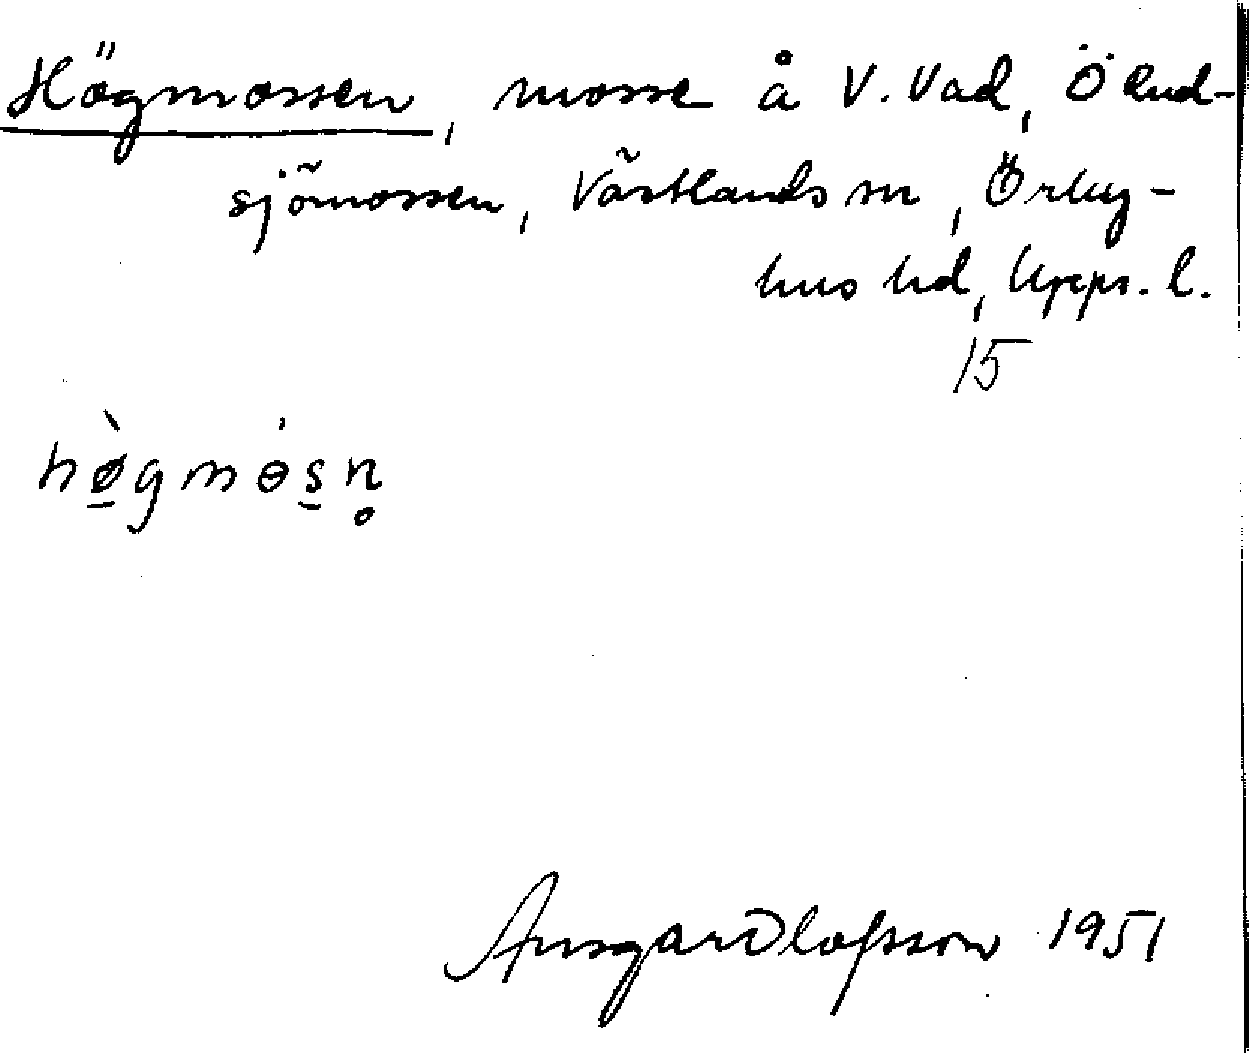 Högmossen, mosse å V. Vad, Ölund-
sjömossen, Västlands sn, Örby-
hus hd, Upps. l.
15
hø̀gmɵ́sn̥
Ansgar Olofsson 1951